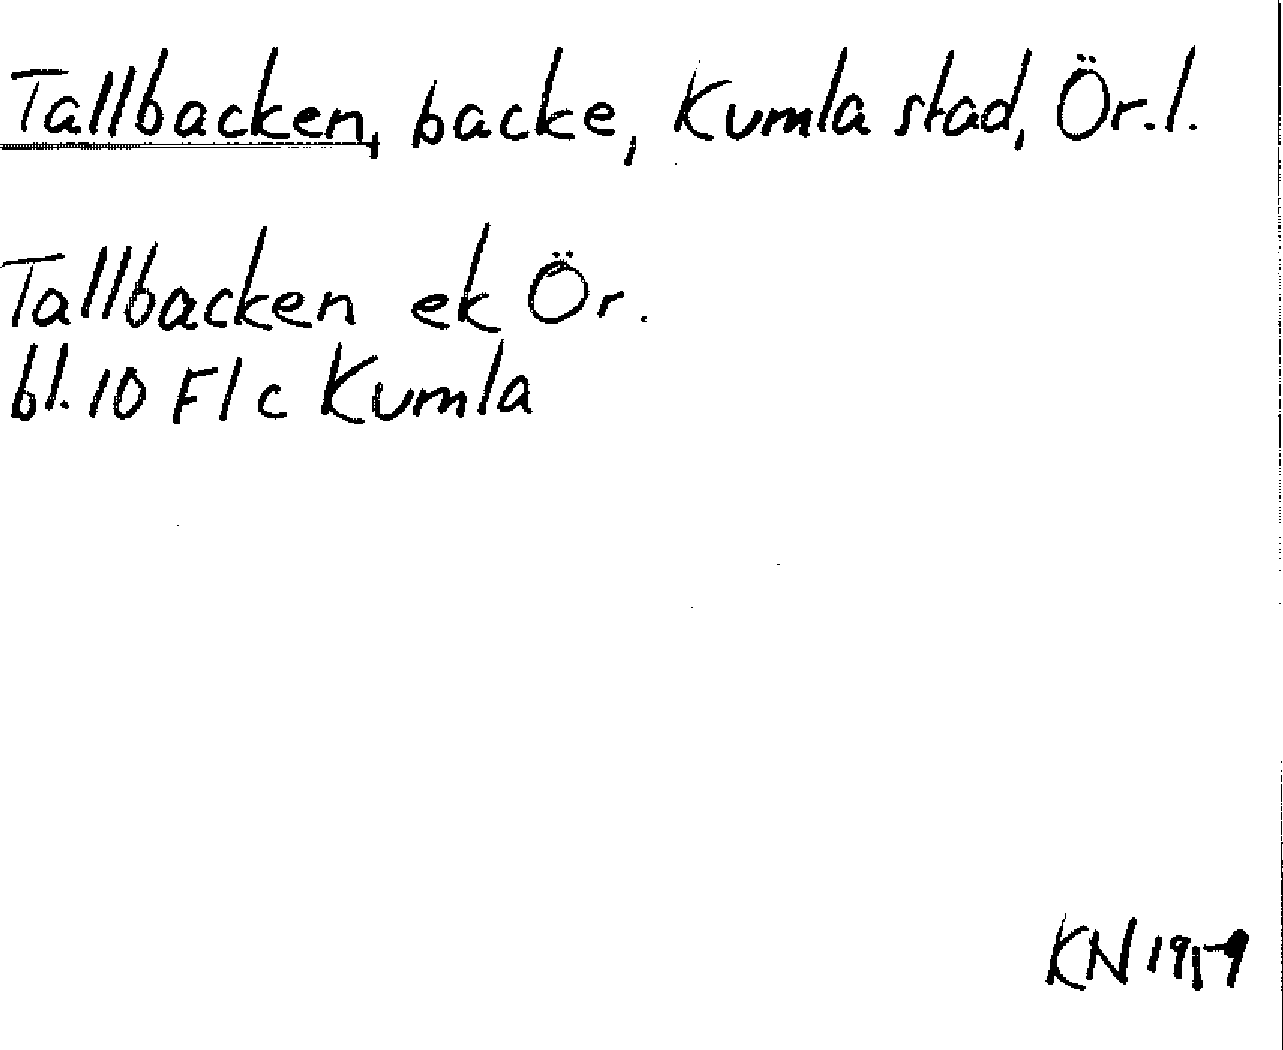 Tallbacken, backe, Kumla stad, Ör.l.
Tallbacken ek Ör.
bl. 10 F1c Kumla
KN 1959